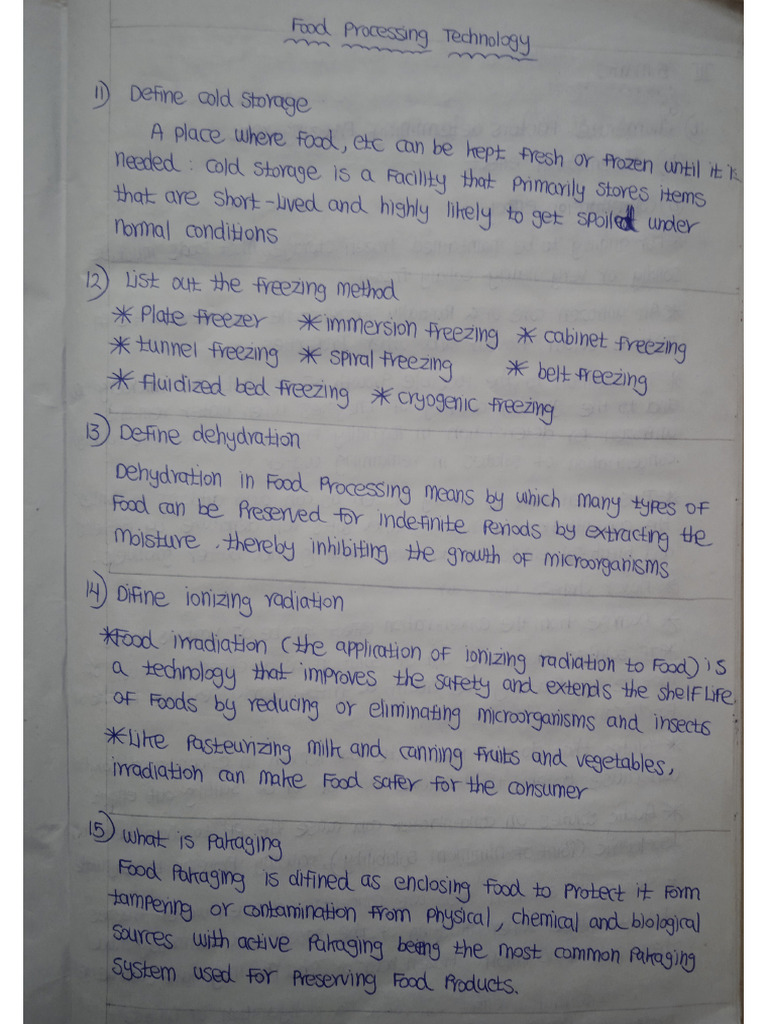 Food Processing Technology
11) Define cold storage
A place where food, etc can be kept fresh or frozen until it is
needed : cold storage is a facility that primarily stores items
that are short-lived and highly likely to get spoiled under
normal conditions
12) List out the freezing method
* Plate freezer * immersion freezing * cabinet freezing
* tunnel freezing * spiral freezing * belt freezing
* fluidized bed freezing * cryogenic freezing
13) Define dehydration
Dehydration in Food Processing means by which many types of
Food can be Preserved for indefinite Periods by extracting the
moisture . thereby inhibiting the growth of microorganisms
14) Difine ionizing radiation
*Food irradiation (the application of ionizing radiation to Food) is
a technology that improves the safety and extends the shelf life
of Foods by reducing or eliminating microorganisms and insects
*Like Pasteurizing milk and canning fruits and vegetables,
irradiation can make Food safer for the consumer
15) What is Pakaging
Food Pakaging is difined as enclosing food to protect it form
tampering or contamination from physical, chemical and biological
sources with active Pakaging being the most common Pakaging
system used for Preserving Food Products.